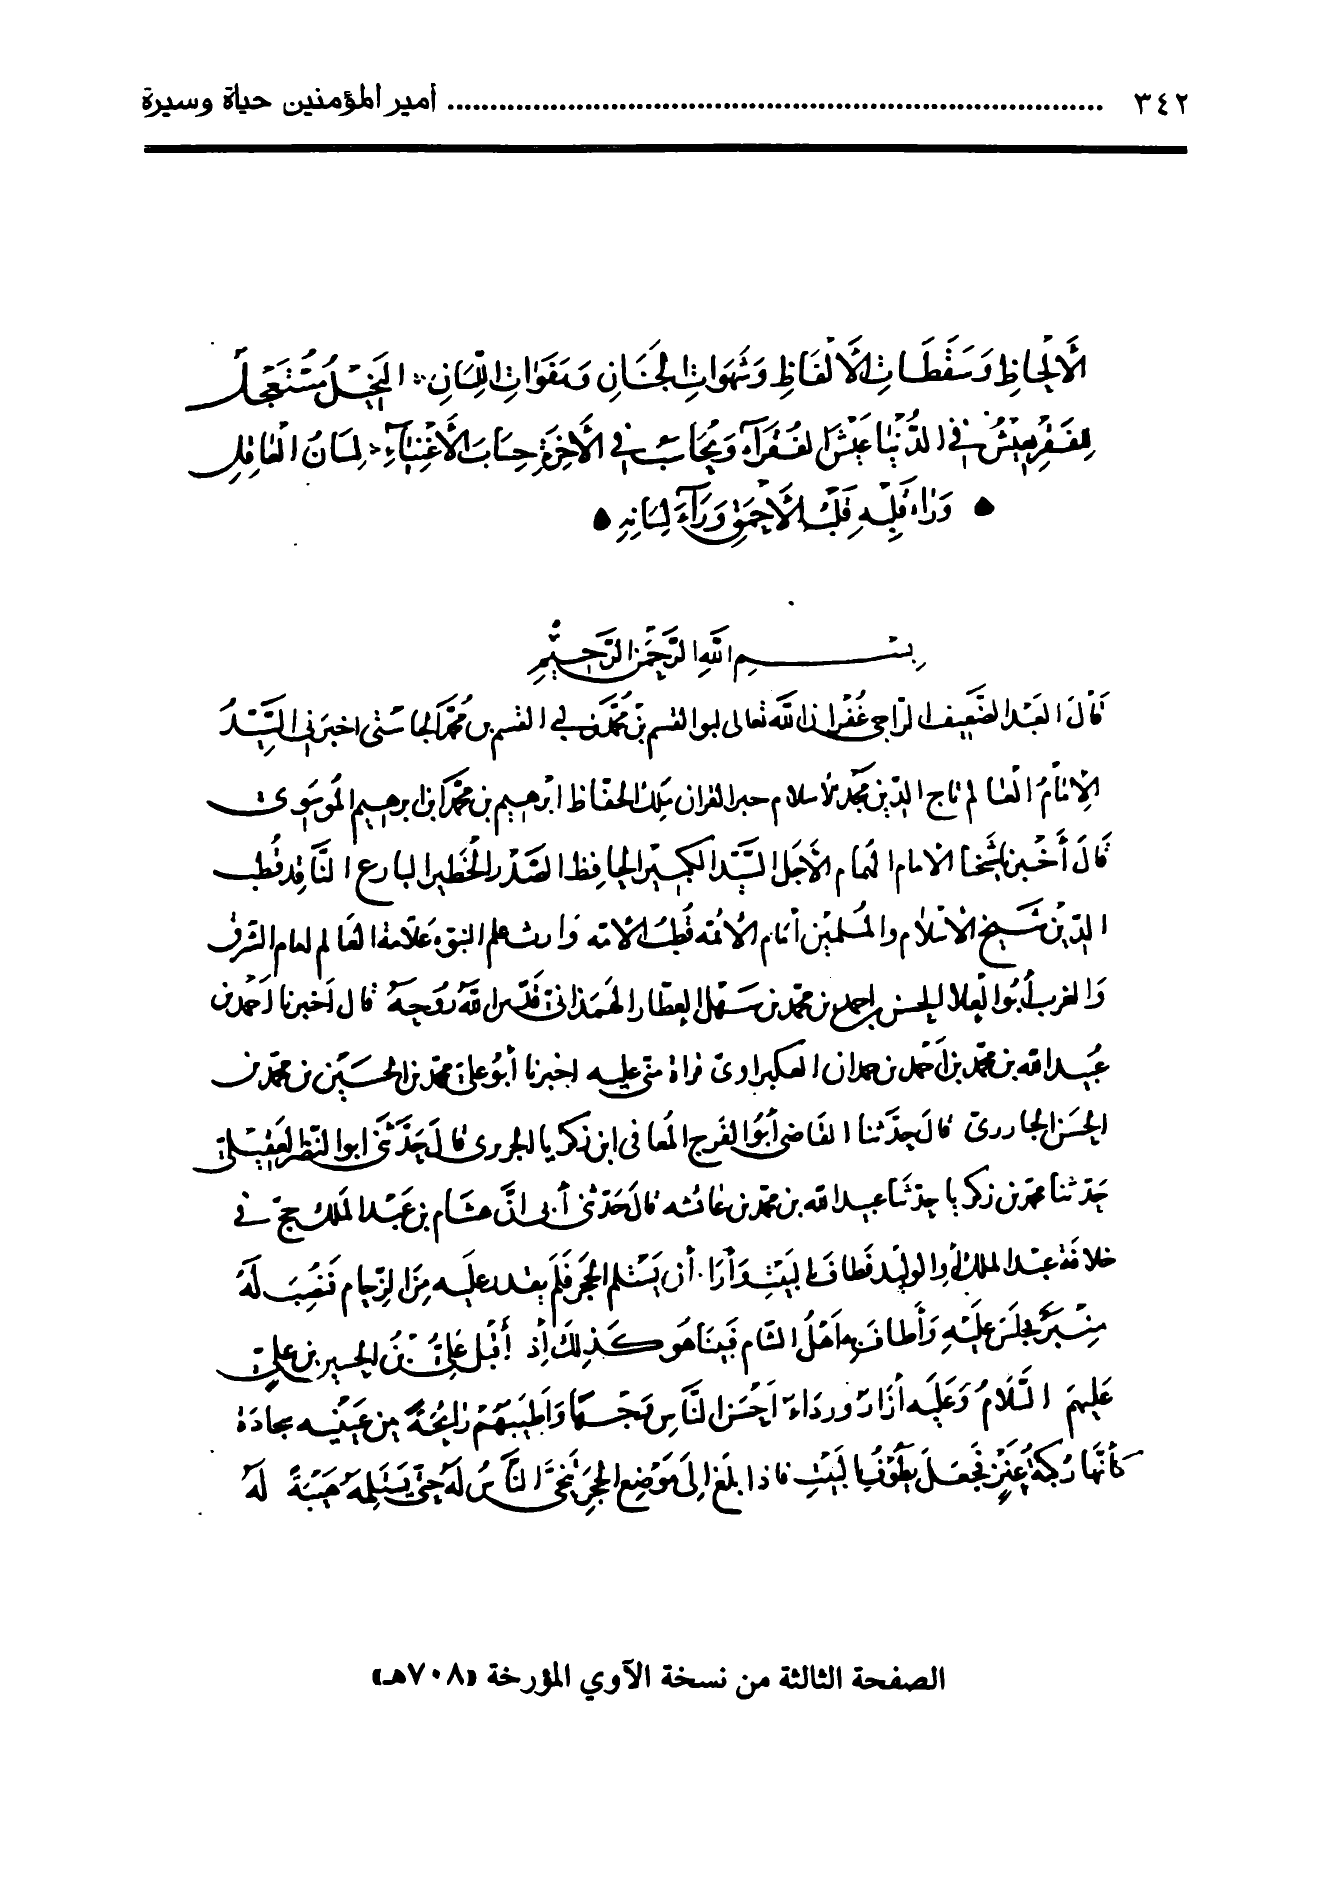 ٣٤٢ ........ أمير المؤمنين حياة وسيرة
الْأَلْحَاظِ وَسَقَطَاتِ الْأَلْفَاظِ وَشَهَوَاتِ الْجَنَانِ وَهَفَوَاتِ اللِّسَانِ البَخِيلُ مُسْتَعْجِلُ
لِلفَقْرِ يَعِيشُ في الدُّنْيَا عَيْشَ الفُقَرَآءِ وَيُحَاسَبُ في الْأَخِرَةِ حِسَابَ الْأَغْنِيَآءِ لِسَانُ الْعَاقِلِ
وَرَاءَ قَلْبِهِ قَلْبُ الْأَحْمَقِ وَرَآءَ لِسَانِهِ
بسم الله الرَّحمن الرَّحِيمِ
قَالَ العَبْد الضَّعِيف الراجى غُفْران الله تعالى ابو القسم بن مُحَمَّد بن أبي القسم بن مُحَمَّد الجاستى اخبرَنِى السَّيِّدُ
الإمَامُ العالم تاج الدّين مجد الاسلام حبر القران ملك الحفّاظ ابرهيم بن محمّد ابن ابرهيم المُوسَوِى
قَالَ أَخْبرنا شيخنا الإمام الهمام الأَجَل السَّيِّد الكبير الحافِظ الصَّدْر الخَطير البارع النَّاقِد قُطب
الدّين شَيخ الإسْلام والمُسلمين امام الأئمه قُطب الأمّه وَارث علم النبوّه عَلّامة العَالم امام الشرف
وَالغرب أَبُو العلا الحسن بن احمد بن محمّد بن سَهْل العطار الهمَذانىّ قَدّس اللهُ رُوحَهُ قال أَخبرنا أحْمد بن
عُبيد الله بن محمّد بن أحمد بن حمدان العكبراوىّ قراة منّى عليه اخبرنا أبُو علىّ محمّد بن الحُسَيْن بن محمّد بن
الحَسَن الجازرىّ قالَ حدّثنا القَاضى أَبُو الفَرج المُعافى ابن زكريا الجريرى قالَ حَدَّثَنى ابو النَّضْر العَقيلىّ
حَدّثنا محمّد بن زكريا حدثنا عبيد الله بن محمّد بن عائشه قالَ حَدّثنى أبى انَّ هشام بن عَبْد الملك حجّ في
خلافة عبد الملك أو الوليد فطاف بالبَيْتِ وَأَرَادَ أن يَسْتلم الحَجَر فلَم يقدر عليه مِنَ الزِّحام فَنُصِبَ لَهُ
مِنْبَرٌ فجلسَ عَلَيْهِ وَأَطافَ بِه أَهْلُ الشام فَبَيْنَا هُو كَذلِكَ إذْ أقْبل عَلِىُّ بْنُ الحسين بن علىّ
عَلَيهِمَ السَّلَامُ وَعَلَيه أزَارٌ ورداءٌ أَحْسَنِ النَّاسِ وَجْهًا وَأَطْيَبَهُمْ رَائِحَةً بين عَيْنَيه سجادَة
كَأَنَّها رُكبةُ عَنْزٍ فَجعَلَ يَطُوْفُ بالبَيْتِ فاذا بلغ إلى مَوْضِع الحَجَر تَنَحَّى النَّاسُ لَهُ حَتّى يَسْتَلِمَهُ هَيْبَةً لَهُ
الصفحة الثالثة من نسخة الآوي المؤرخة «٧٠٨هـ»